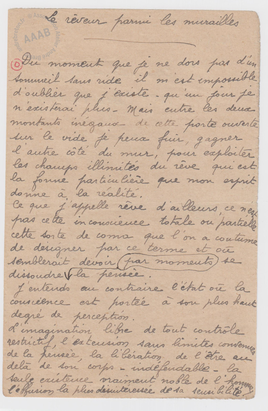 Le rêveur parmi les murailles
AAAB
Du moment que je ne dors pas d'un
sommeil sans ride il m'est impossible
d'oublier que j'existe, qu'un jour je
n'existerai plus. Mais entre les deux
montants inégaux de cette porte ouverte
sur le vide je peux fuir, gagner
l'autre côté du mur, pour exploiter
les champs illimités du rêve qui est
la forme particulière que mon esprit
donne à la réalité.
Ce que j'appelle rêve d'ailleurs, ce n'est
pas cette inconscience totale ou partielle
cette sorte de coma que l'on a coutume
de designer par ce terme et où
semblerait devoir par moments se
dissoudre la pensée.
J'entends au contraire l'état où la
conscience est portée à son plus haut
degré de perception.
L'imagination libre de tout contrôle
restrictif, l'extension sans limites consentie
de la pensée, la libération de l'être au
delà de son corps - indéfendable - la
seule existence vraiment noble de l'homme
l'effusion la plus désintéressée de sa sensibilité